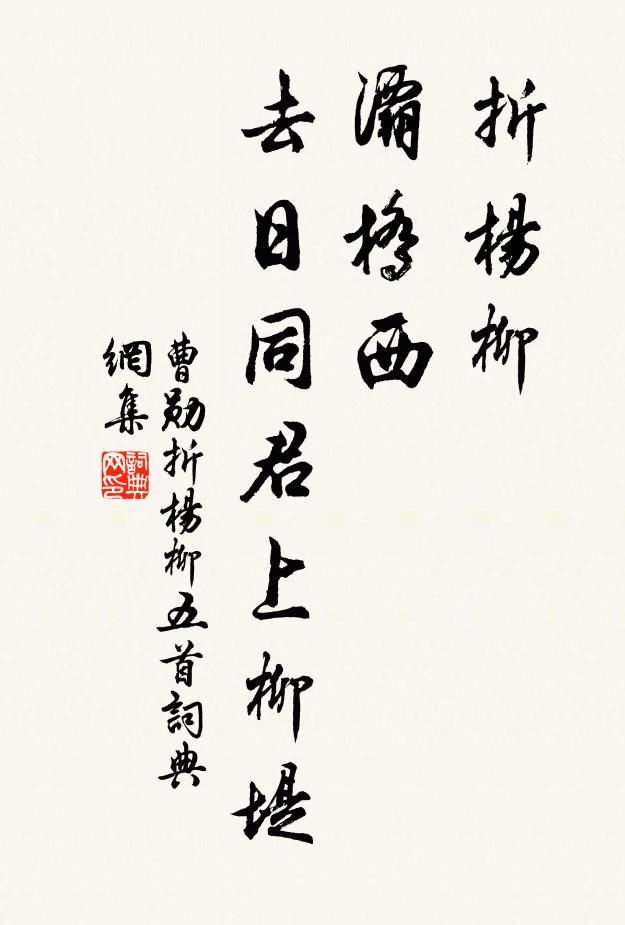 折楊柳
灞橋西
去日同君上柳堤
曹勛折楊柳五首詞典
網集
詞典
网印